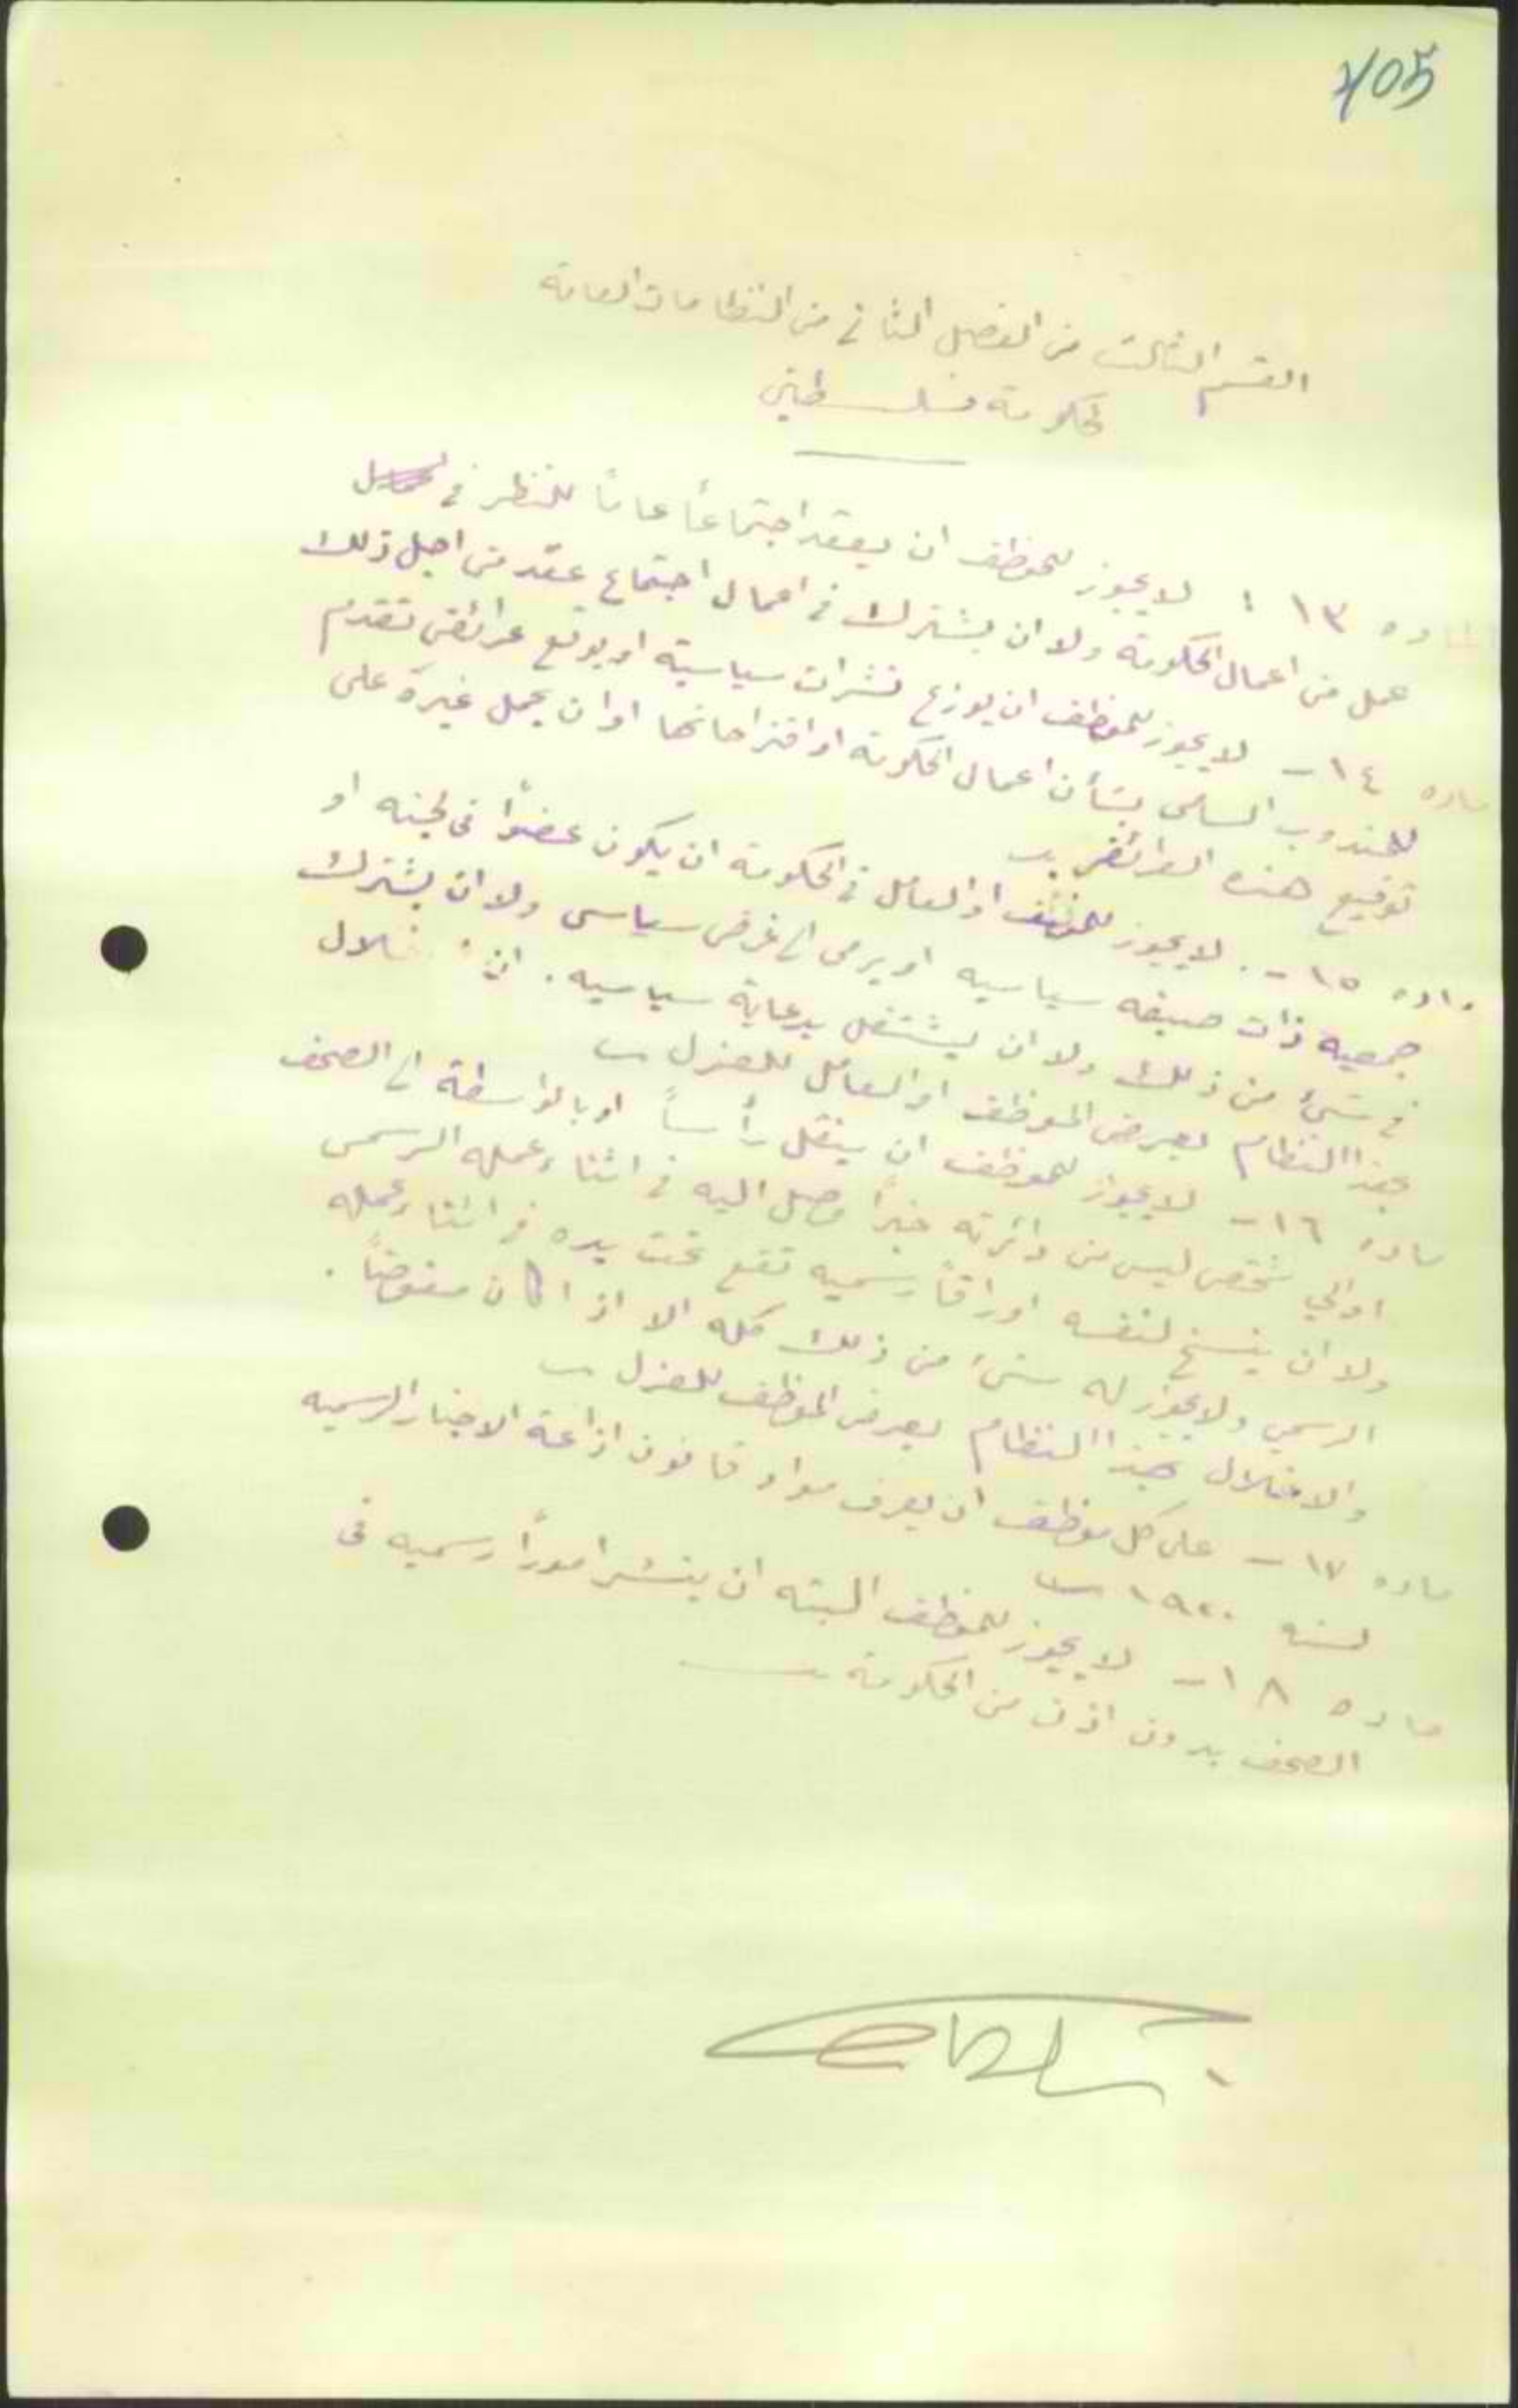 105
القسم الثالث من الفصل الثاني من النظامات العامة
لحكومة فلسطين
مادة ١٣ : لا يجوز للموظف ان يعقد اجتماعاً عاماً للنظر في
عمل من اعمال الحكومة ولا ان يشترك في اعمال اجتماع عقد من اجل ذلك
ماده ١٤ - لا يجوز للموظف ان يوزع نشرات سياسية او يوقع عرائض تقدم
للمندوب السامي بشأن اعمال الحكومة او اقتراحاتها او ان يحمل غيره على
توقيع هذه العرائض
ماده ١٥ - لا يجوز للموظف او العامل في الحكومة ان يكون عضواً في لجنه او
جمعيه ذات صبغه سياسيه او يرمى الى غرض سياسى ولا ان يشترك
في شيء من ذلك ولا ان يشتغل بدعاية سياسيه .
بهذا النظام يعرض الموظف او العامل للعزل
ماده ١٦ - لا يجوز للموظف ان ينقل رأساً او بالواسطة الى الصحف
او الي شخص ليس من دائرته خبراً وصل اليه في اثناء عمله الرسمى
ولا ان ينسخ لنفسه اوراقاً رسميه تقع تحت يده في اثناء عمله
الرسمي ولا يجوز له شيء من ذلك كله الا اذا كان مفوضاً .
والاخلال بهذا النظام يعرض الموظف للعزل
ماده ١٧ - على كل موظف ان يعرف مواد قانون اذاعة الاخبار الرسميه
لسنه ١٩٢٠
ماده ١٨ - لا يجوز للموظف البته ان ينشر اموراً رسميه في
الصحف بدون اذن من الحكومة